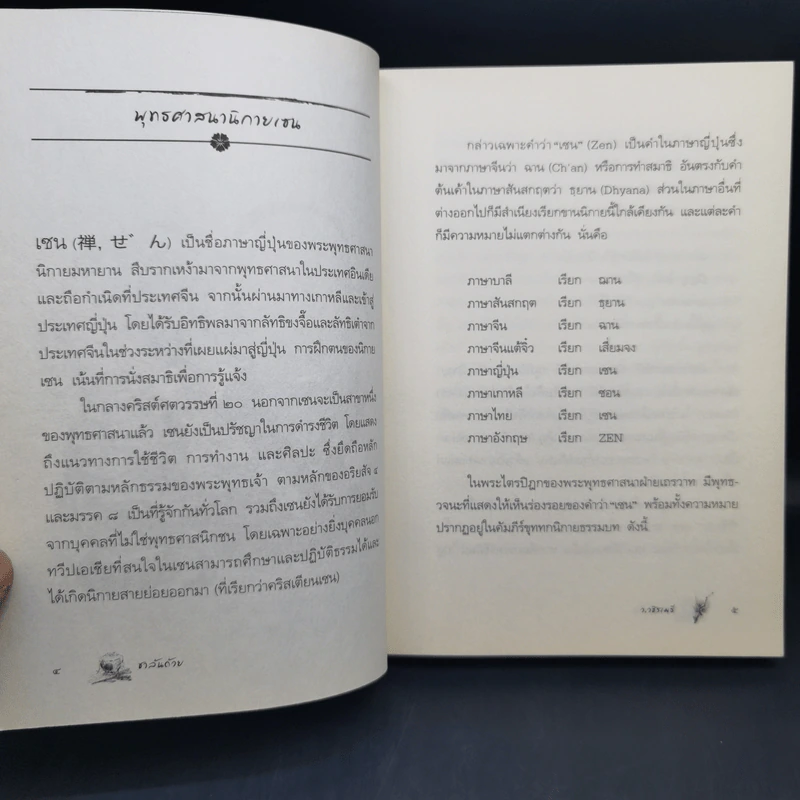 พุทธศาสนานิกายเซน
เซน (禅, ぜん) เป็นชื่อภาษาญี่ปุ่นของพระพุทธศาสนา
นิกายมหายาน สืบรากเหง้ามาจากพุทธศาสนาในประเทศอินเดีย
และถือกำเนิดที่ประเทศจีน จากนั้นผ่านมาทางเกาหลีและเข้าสู่
ประเทศญี่ปุ่น โดยได้รับอิทธิพลมาจากลัทธิขงจื๊อและลัทธิเต๋าจาก
ประเทศจีนในช่วงระหว่างที่เผยแผ่มาสู่ญี่ปุ่น การฝึกตนของนิกาย
เซน เน้นที่การนั่งสมาธิเพื่อการรู้แจ้ง
ในกลางคริสต์ศตวรรษที่ ๒๐ นอกจากเซนจะเป็นสาขาหนึ่ง
ของพุทธศาสนาแล้ว เซนยังเป็นปรัชญาในการดำรงชีวิต โดยแสดง
ถึงแนวทางการใช้ชีวิต การทำงาน และศิลปะ ซึ่งยึดถือหลัก
ปฏิบัติตามหลักธรรมของพระพุทธเจ้า ตามหลักของอริยสัจ ๔
และมรรค ๘ เป็นที่รู้จักกันทั่วโลก รวมถึงเซนยังได้รับการยอมรับ
จากบุคคลที่ไม่ใช่พุทธศาสนิกชน โดยเฉพาะอย่างยิ่งบุคคลนอก
ทวีปเอเชียที่สนใจในเซนสามารถศึกษาและปฏิบัติธรรมได้และ
ได้เกิดนิกายสายย่อยออกมา (ที่เรียกว่าคริสเตียนเซน)
๔ ชาล้นถ้วย
กล่าวเฉพาะคำว่า “เซน” (Zen) เป็นคำในภาษาญี่ปุ่นซึ่ง
มาจากภาษาจีนว่า ฉาน (Ch'an) หรือการทำสมาธิ อันตรงกับคำ
ต้นเค้าในภาษาสันสกฤตว่า ธฺยาน (Dhyana) ส่วนในภาษาอื่นที่
ต่างออกไปก็มีสำเนียงเรียกขานนิกายนี้ใกล้เคียงกัน และแต่ละคำ
ก็มีความหมายไม่แตกต่างกัน นั่นคือ
ภาษาบาลี เรียก ฌาน
ภาษาสันสกฤต เรียก ธฺยาน
ภาษาจีน เรียก ฉาน
ภาษาจีนแต้จิ๋ว เรียก เสี่ยมจง
ภาษาญี่ปุ่น เรียก เซน
ภาษาเกาหลี เรียก ซอน
ภาษาไทย เรียก เซน
ภาษาอังกฤษ เรียก ZEN
ในพระไตรปิฎกของพระพุทธศาสนาฝ่ายเถรวาท มีพุทธ-
วจนะที่แสดงให้เห็นร่องรอยของคำว่า “เซน” พร้อมทั้งความหมาย
ปรากฏอยู่ในคัมภีร์ขุททกนิกายธรรมบท ดังนี้
๕